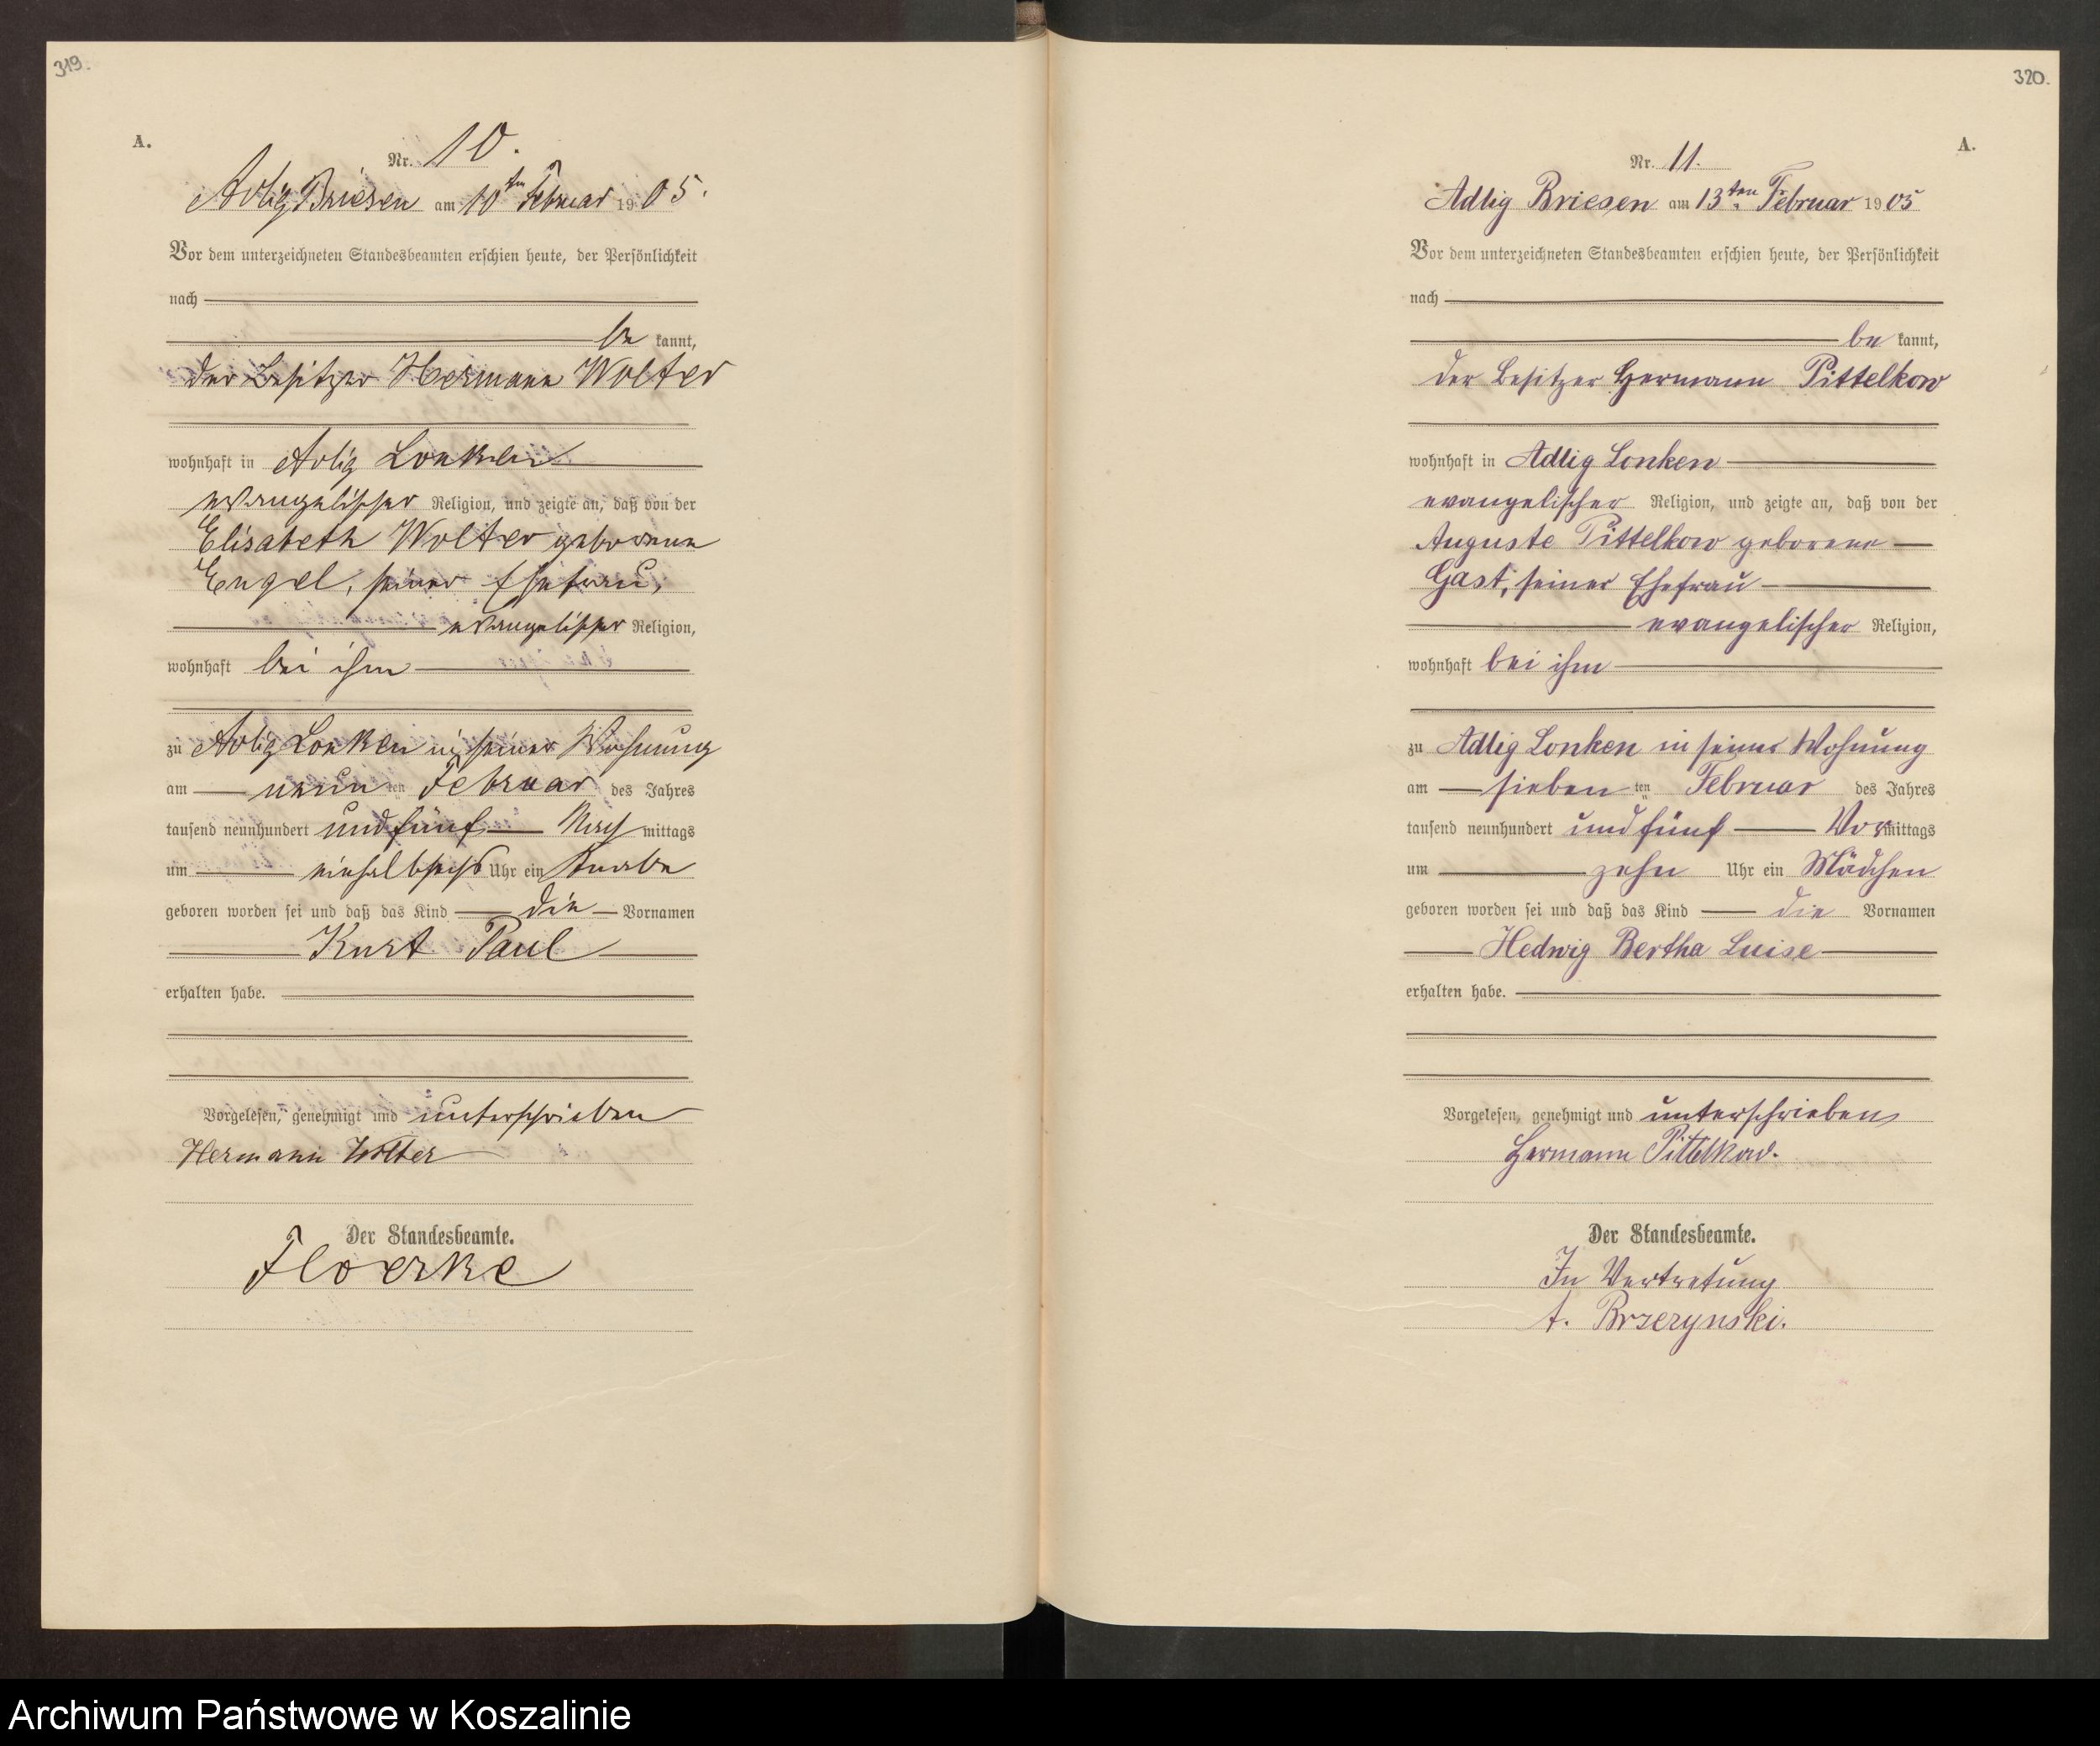 319.
A.
Nr. 10.
Adlig Briesen am 10ten Februar 1905.
Vor dem unterzeichneten Standesbeamten erschien heute, der Persönlichkeit
nach
be kannt,
der Besitzer Hermann Wolter
wohnhaft in Adlig Lonken
evangelischer Religion, und zeigte an, daß von der
Elisabeth Wolter geborene
Engel, seiner Ehefrau,
evangelischer Religion,
wohnhaft bei ihm
zu Adlig Lonken in seiner Wohnung
am neunten Februar des Jahres
tausend neunhundert und fünf Nach mittags
um einhalbsechs Uhr ein Knabe
geboren worden sei und daß das Kind die Vornamen
Kurt Paul
erhalten habe.
Vorgelesen, genehmigt und unterschrieben
Hermann Wolter
Der Standesbeamte.
Floerke
320.
A.
Nr. 11.
Adlig Briesen am 13ten Februar 1905
Vor dem unterzeichneten Standesbeamten erschien heute, der Persönlichkeit
nach
be kannt,
der Besitzer Hermann Pittelkow
wohnhaft in Adlig Lonken
evangelischer Religion, und zeigte an, daß von der
Auguste Pittelkow geborene
Gast, seiner Ehefrau
evangelischer Religion,
wohnhaft bei ihm
zu Adlig Lonken in seiner Wohnung
am siebenten Februar des Jahres
tausend neunhundert und fünf Vormittags
um zehn Uhr ein Mädchen
geboren worden sei und daß das Kind die Vornamen
Hedwig Bertha Luise
erhalten habe.
Vorgelesen, genehmigt und unterschrieben
Hermann Pittelkow.
Der Standesbeamte.
In Vertretung
A. Brzezynski.
Archiwum Państwowe w Koszalinie